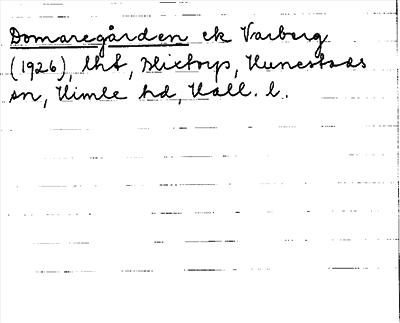 Domaregården ek Varberg
(1926), lht, Mixtorp, Hunestads
sn, Himle hd, Hall. l.